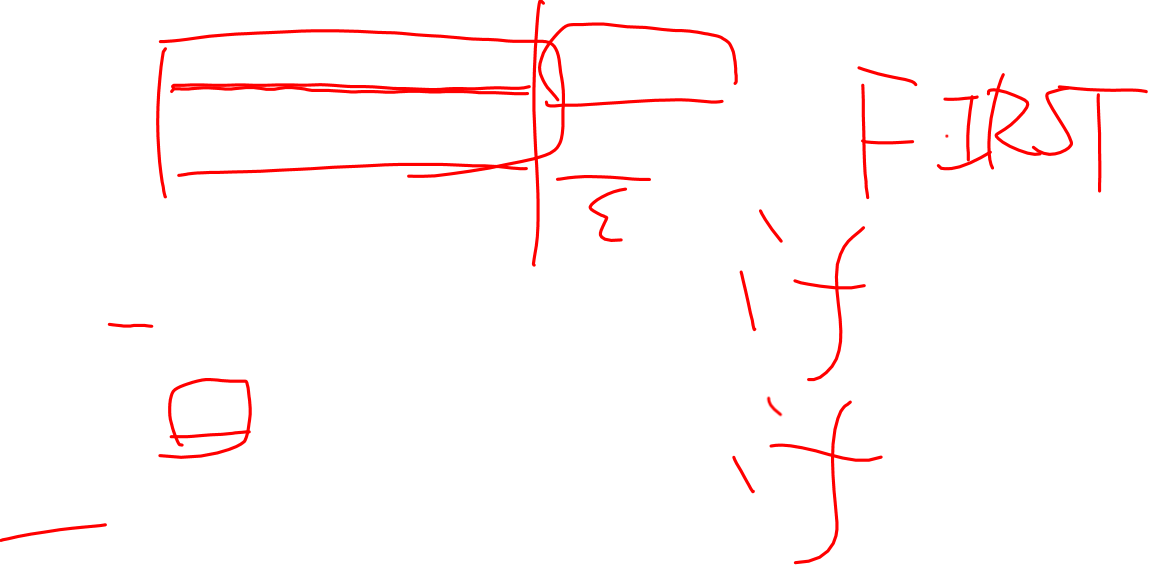 FIRST
ε
if
if